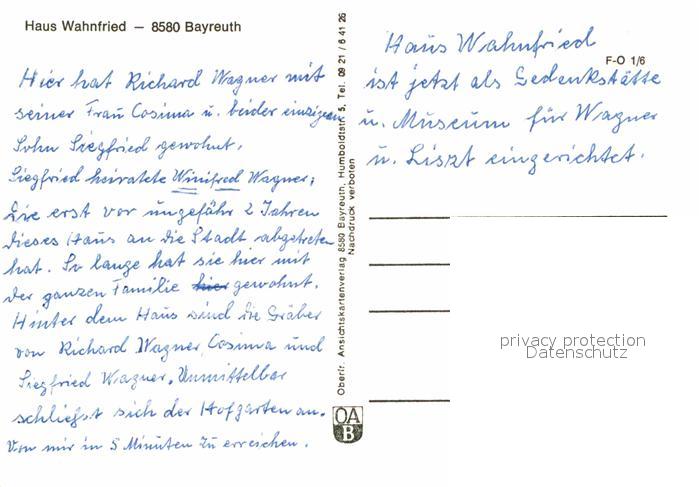 Haus Wahnfried – 8580 Bayreuth
Hier hat Richard Wagner mit
seiner Frau Cosima u. beider einzigen
Sohn Siegfried gewohnt.
Siegfried heiratete Winifred Wagner;
die erst vor ungefähr 2 Jahren
dieses Haus an die Stadt abgetreten
hat. So lange hat sie hier mit
der ganzen Familie hier gewohnt.
Hinter dem Haus sind die Gräber
von Richard Wagner, Cosima und
Siegfried Wagner. Unmittelbar
schließt sich der Hofgarten an.
Von mir in 5 Minuten zu erreichen.
Oberfr. Ansichtskartenverlag 8580 Bayreuth, Humboldtstr. 5, Tel. 09 21 / 6 41 26
Nachdruck verboten
OA
B
Haus Wahnfried
F-O 1/6
ist jetzt als Gedenkstätte
u. Museum für Wagner
u. Liszt eingerichtet.
privacy protection
Datenschutz